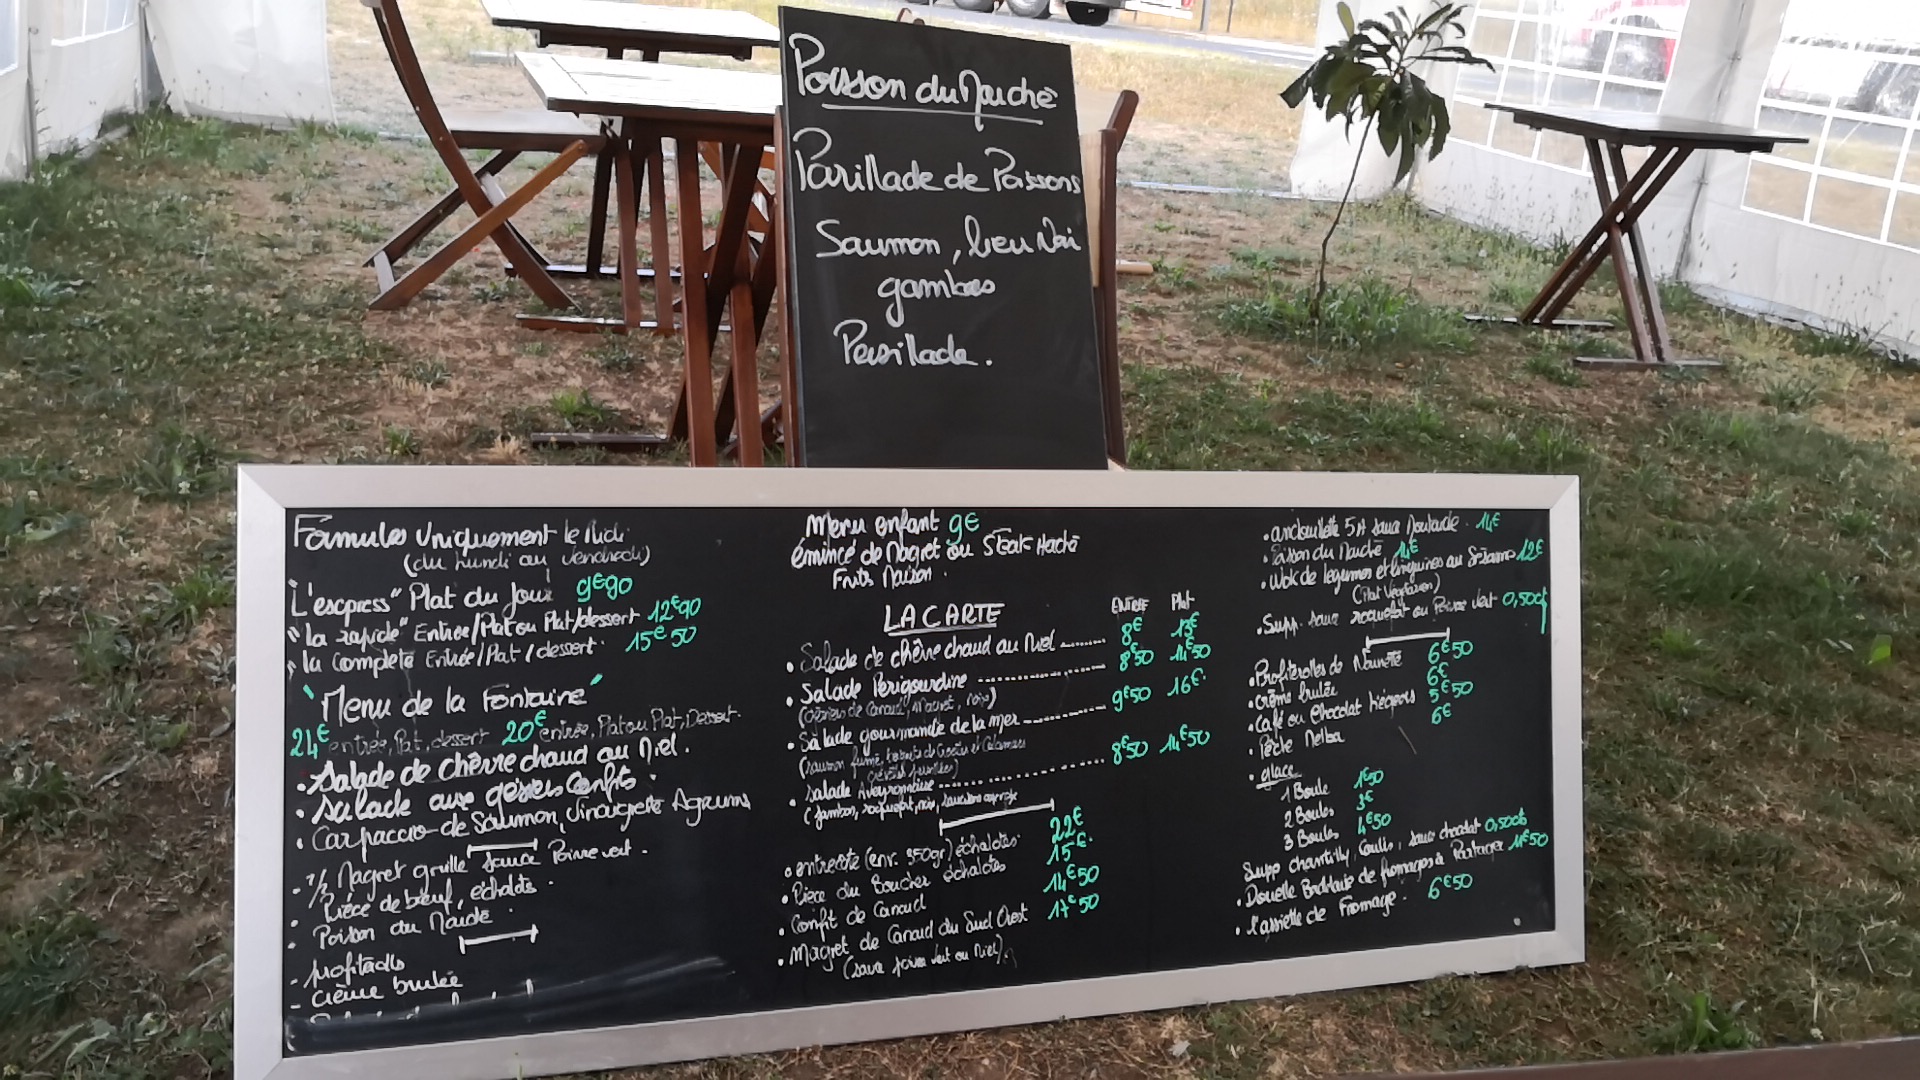 Poisson du Marché
Parillade de Poissons
Saumon, lieu Noir
gambas
Persillade.
Formules Uniquement le Midi
(du Lundi au Vendredi)
"L'express" Plat du Jour 9€90
"la rapide" Entrée/Plat ou Plat/dessert 12€90
"la Complète Entrée/Plat/dessert. 15€50
"Menu de la Fontaine"
24€ entrée, Plat, dessert 20€ entrée, Plat ou Plat, Dessert.
• Salade de chèvre chaud au Miel.
• Salade aux gésiers Confits.
• Carpaccio de Saumon, Vinaigrette Agrumes
• 1/2 Magret grillé sauce Poivre vert.
• Pièce de bœuf, échalotes.
• Poisson du Marché.
- profiteroles
- Crème brulée
Menu enfant 9€
émincé de Magret ou Steak Haché
Frites Maison.
LA CARTE ENTREE Plat
• Salade de chèvre chaud au Miel ........ 8€ 13€
• Salade Perigourdine .................. 8€50 14€50
(Gésiers de Canard, Magret, noix)
• Salade gourmande de la mer ........... 9€50 16€.
(saumon fumé, beignets de Crevettes et Calamars
• Salade Aveyronnaise .................. 8€50 14€50
(Jambon, roquefort, noix,
• entrecôte (env. 350gr) échalotes 22€
• Pièce du Boucher échalotes 15€.
• Confit de Canard 14€50
• Magret de Canard du Sud Ouest 17€50
(sauce poivre vert ou Miel)
• andouillette 5A sauce Moutarde. 14€
• Poisson du Marché 14€
• Wok de légumes et linguines au Sésame 12€
(Plat Végétarien)
• Supp. sauce roquefort ou Poivre vert 0,50ct
• Profiterolles de Mounette 6€50
• Crème brulée 6€
• Café ou Chocolat liégeois 5€50
• Pêche Melba 6€
• glace
1 Boule 1€50
2 Boules 3€
3 Boules 4€50
Supp chantilly, Coulis, sauce chocolat 0,50cts
• de fromages à Partager 11€50
• l'assiette de Fromage. 6€50